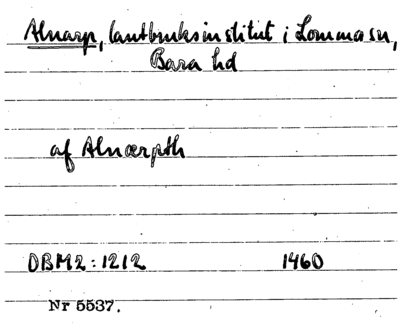 Alnarp, lantbruksinstitut i Lomma sn,
Bara hd
af Alnærpth
DBM2:1212 1460
Nr 5537.